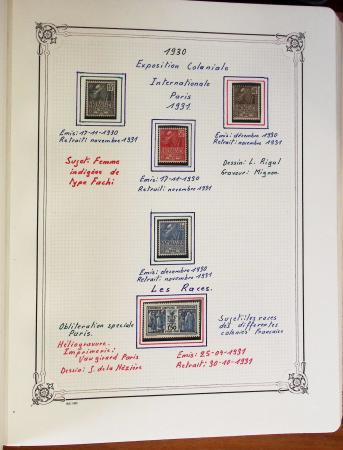 1930
Exposition Coloniale
Internationale
Paris
1931.
Emis: 17-11-1930
Retrait: novembre 1931
Emis: décembre 1930
Retrait: novembre 1931
Sujet: Femme
indigène de
type Fachi
Emis: 17-11-1930
Retrait: novembre 1931
Dessin: L. Rigal
Graveur: Mignon.
Emis: décembre 1930
Retrait: novembre 1931
Les Races.
Oblitération spéciale
Paris.
Héliogravure.
Imprimerie:
Vaugirard Paris
Dessin: J. de la Nézière
1f50
Sujet: les races
des différentes
colonies française
Emis: 25-04-1931
Retrait: 30-10-1931